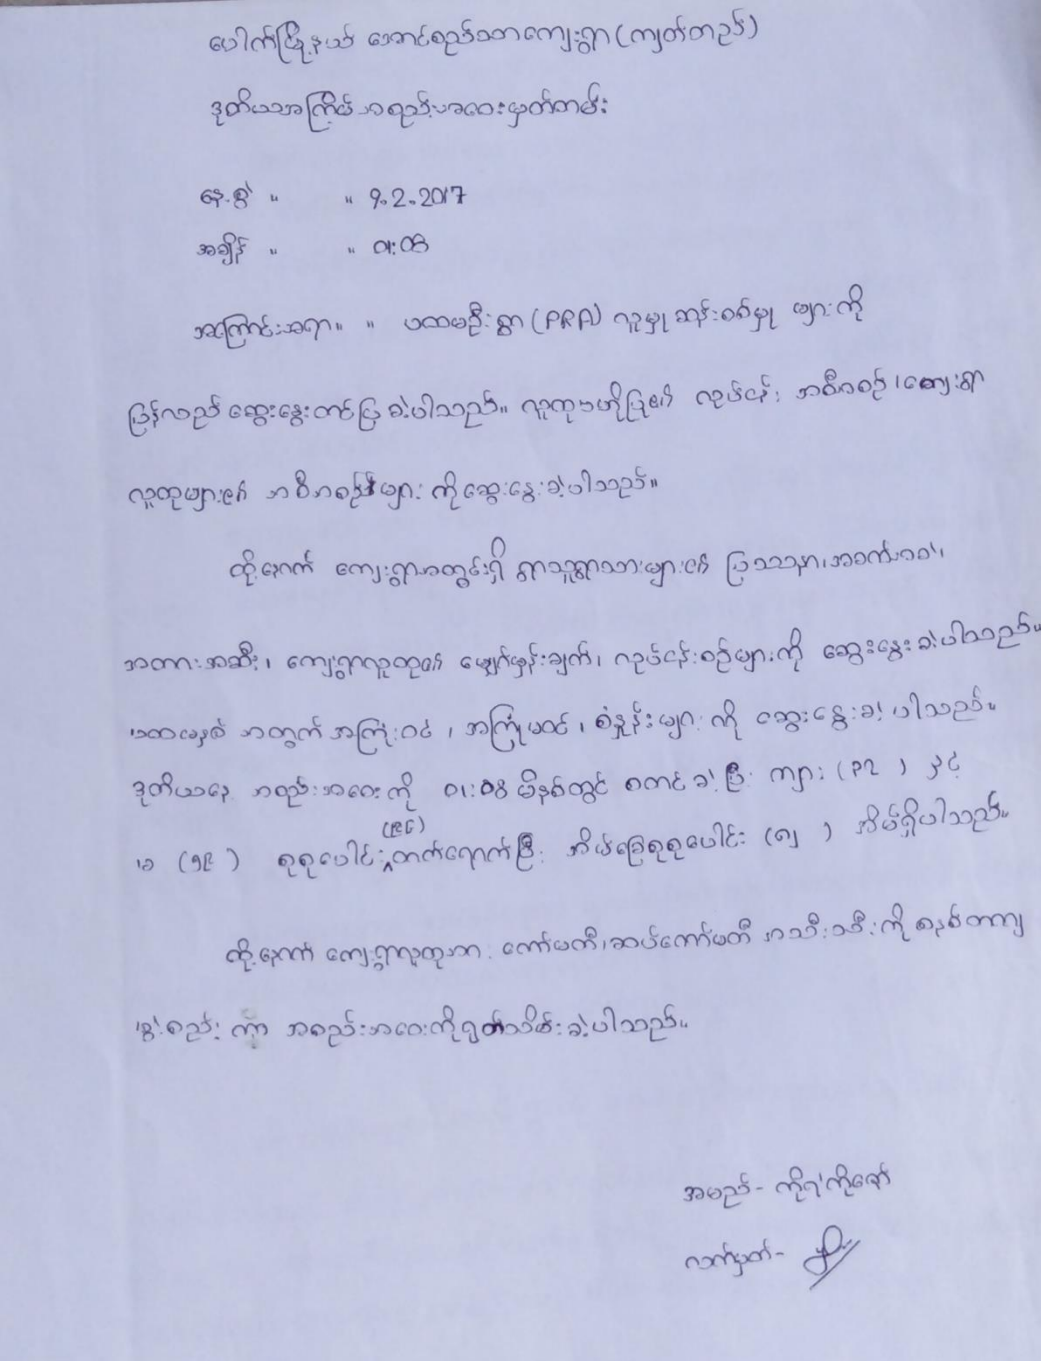 ပေါက်မြို့နယ် အောင်စည်သာကျေးရွာ (ကျတ်တည်)
ဒုတိယအကြိမ် အစည်းအဝေးမှတ်တမ်း
နေ့စွဲ " " 9.2.2017
အချိန် " " ၀၁:၀၆
အကြောင်းအရာ။ " ပထမဦးစွာ (PRA) လူမှုဆန်းစစ်မှု များကို
ပြန်လည် ဆွေးနွေးတင်ပြ ခဲ့ပါသည်။ လူထုဗဟိုပြု၏ လုပ်ငန်း အစီအစဉ် ၊ ကျေးရွာ
လူထုများ၏ အစီအစဉ်များ ကိုဆွေးနွေးခဲ့ပါသည်။
ထို့နောက် ကျေးရွာအတွင်းရှိ ရွာသူရွာသားများ၏ ပြဿနာ၊ အခက်အခဲ၊
အတားအဆီး၊ ကျေးရွာလူထု၏ မျှော်မှန်းချက်၊ လုပ်ငန်းစဉ်များကို ဆွေးနွေးခဲ့ပါသည်။
ပထမနှစ် အတွက် အကြုံးဝင် ၊ အကြုံးမဝင် ၊ စံနှုန်းများ ကို ဆွေးနွေးခဲ့ ပါသည်။
ဒုတိယနေ့ အစည်းအဝေးကို ၀၁:၀၆ မိနစ်တွင် စတင်ခဲ့ပြီး ကျား (၃၇ ) နှင့်
မ (၅၉ ) စုစုပေါင်း (၉၆) တက်ရောက်ပြီး အိမ်ခြေစုစုပေါင်း (၈၂ ) အိမ်ရှိပါသည်။
ထို့နောက် ကျေးရွာလူထုအား ကော်မတီ၊ ဆပ်ကော်မတီ အသီးသီးကို စနစ်တကျ
ဖွဲ့စည်း ကာ အစည်းအဝေးကိုရုတ်သိမ်းခဲ့ပါသည်။
အမည် - ကိုရဲကိုဇော်
လက်မှတ် -